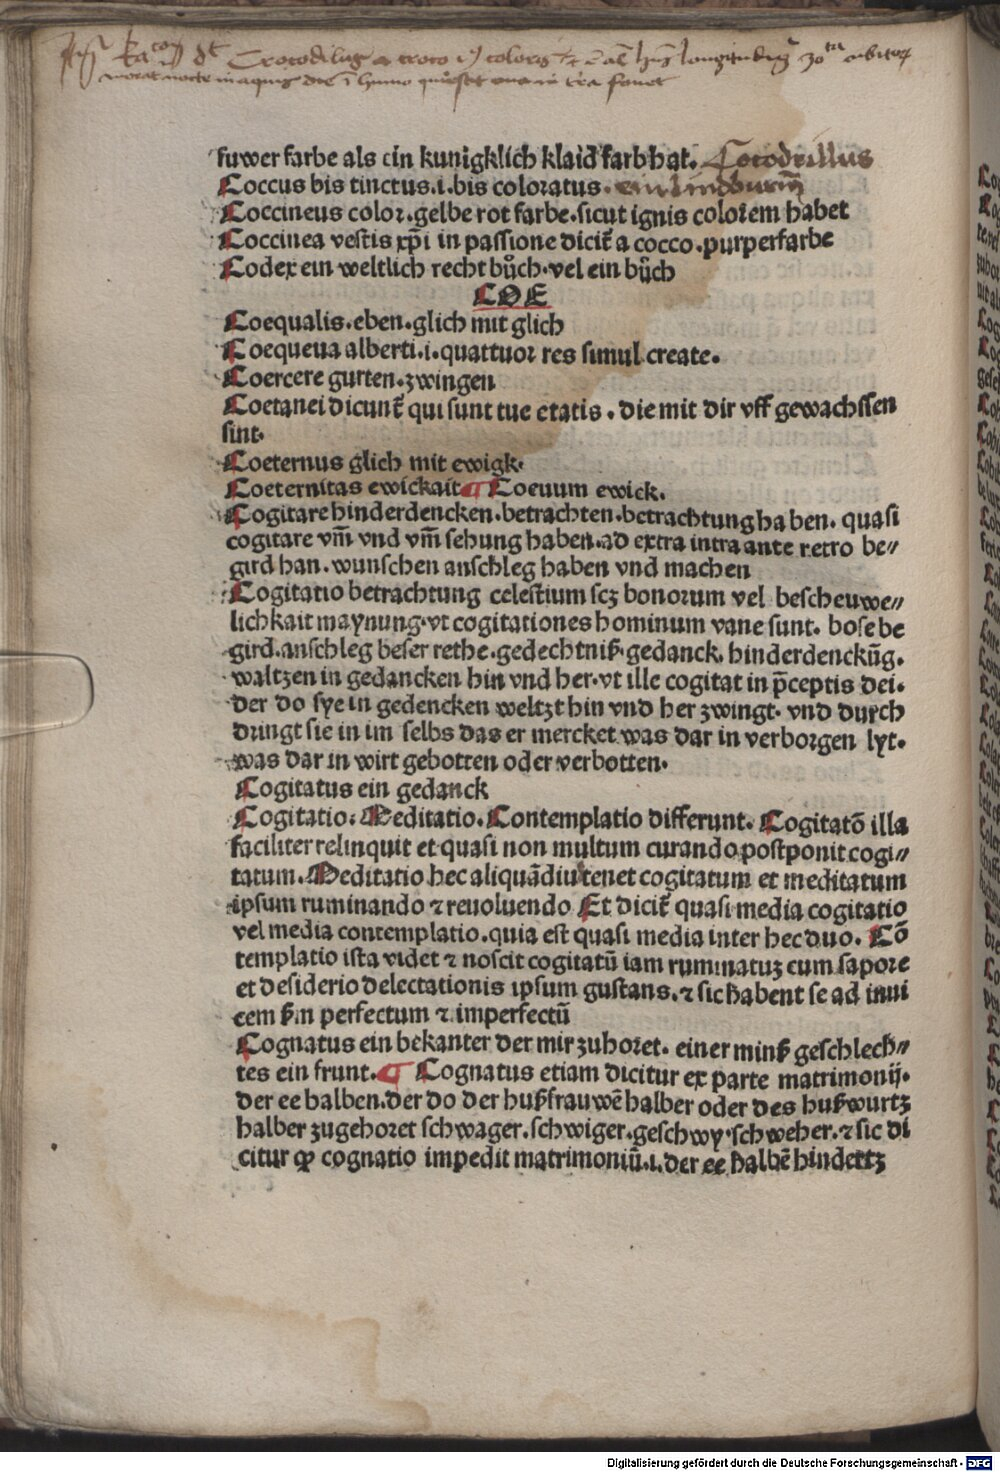 Crocodilus a croco coloris longitudinis
morat nocte in aquis die in humo ova in terra fovet
fuwer farbe als ein kunigklich klaid farb hat. Cocodrillus
Coccus bis tinctus.i.bis coloratus. ein lindwurm
Coccineus color.gelbe rot farbe.sicut ignis colorem habet
Coccinea vestis xp̄i in passione dicit̄ a cocco.purperfarbe
Codex ein weltlich recht bůch.vel ein bůch
COE
Coequalis.eben.glich mit glich
Coequeua alberti.i.quattuor res simul create.
Coercere gurten.zwingen
Coetanei dicunt̄ qui sunt tue etatis. die mit dir vff gewachssen
sint.
Coeternus glich mit ewigk.
Coeternitas ewickait ¶ Coeuum ewick.
Cogitare hinderdencken.betrachten.betrachtung haben. quasi
cogitare vm̄ vnd vm̄ sehung haben.ad extra intra ante retro be⸗
gird han.wunschen anschleg haben vnd machen
Cogitatio betrachtung celestium scꝫ bonorum vel bescheuwe⸗
lichkait maynung.vt cogitationes hominum vane sunt. bose be
gird.anschleg beser rethe.gedechtniß.gedanck. hinderdenckūg.
waltzen in gedancken hin vnd her.vt ille cogitat in p̄ceptis dei.
der do sye in gedencken weltzt hin vnd her zwingt. vnd durch
dringt sie in im selbs das er mercket was dar in verborgen lyt.
was dar in wirt gebotten oder verbotten.
Cogitatus ein gedanck
Cogitatio. Meditatio. Contemplatio differunt. Cogitatō illa
faciliter relinquit et quasi non multum curando postponit cogi⸗
tatum. Meditatio hec aliquādiu tenet cogitatum et meditatum
ipsum ruminando ⁊ reuoluendo Et dicit̄ quasi media cogitatio
vel media contemplatio.quia est quasi media inter hec duo. Cō
templatio ista videt ⁊ noscit cogitatū iam ruminatuꝫ cum sapore
et desiderio delectationis ipsum gustans.⁊ sic habent se ad inui
cem ẜm perfectum ⁊ imperfectū
Cognatus ein bekanter der mir zuhoret. einer minß geschlech⸗
tes ein frunt. ¶ Cognatus etiam dicitur ex parte matrimonij.
der ee halben.der do der hußfrauwē halber oder des hußwurtz
halber zugehoret schwager.schwiger.geschwy.schweher.⁊ sic di
citur ꝙ cognatio impedit matrimoniū.i.der ee halbē hindertz
Digitalisierung gefördert durch die Deutsche Forschungsgemeinschaft - DFG